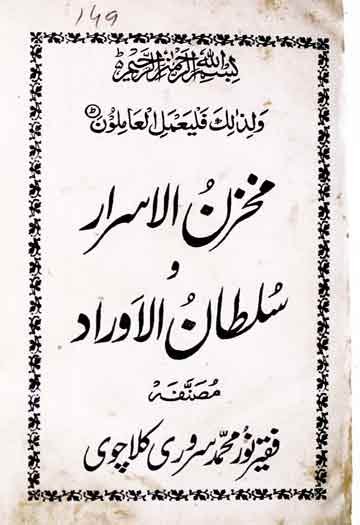 149
بسم الله الرحمن الرحيم ط
ولذالك فليعمل العاملون ط
مخزنُ الاسرار
و
سُلطانُ الاَوراد
مصنّفہ
فقیر نور محمّد سروری کلاچوی